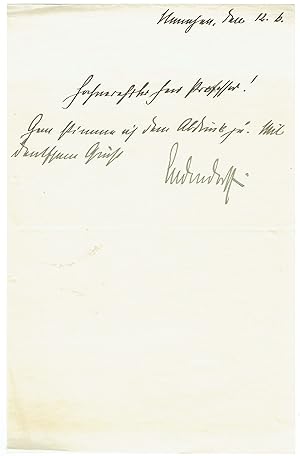 München, den 12. 6.
Hochverehrter Herr Professor!
Gern stimme ich dem Abdruck zu. Mit
deutschem Gruß
Ludendorff